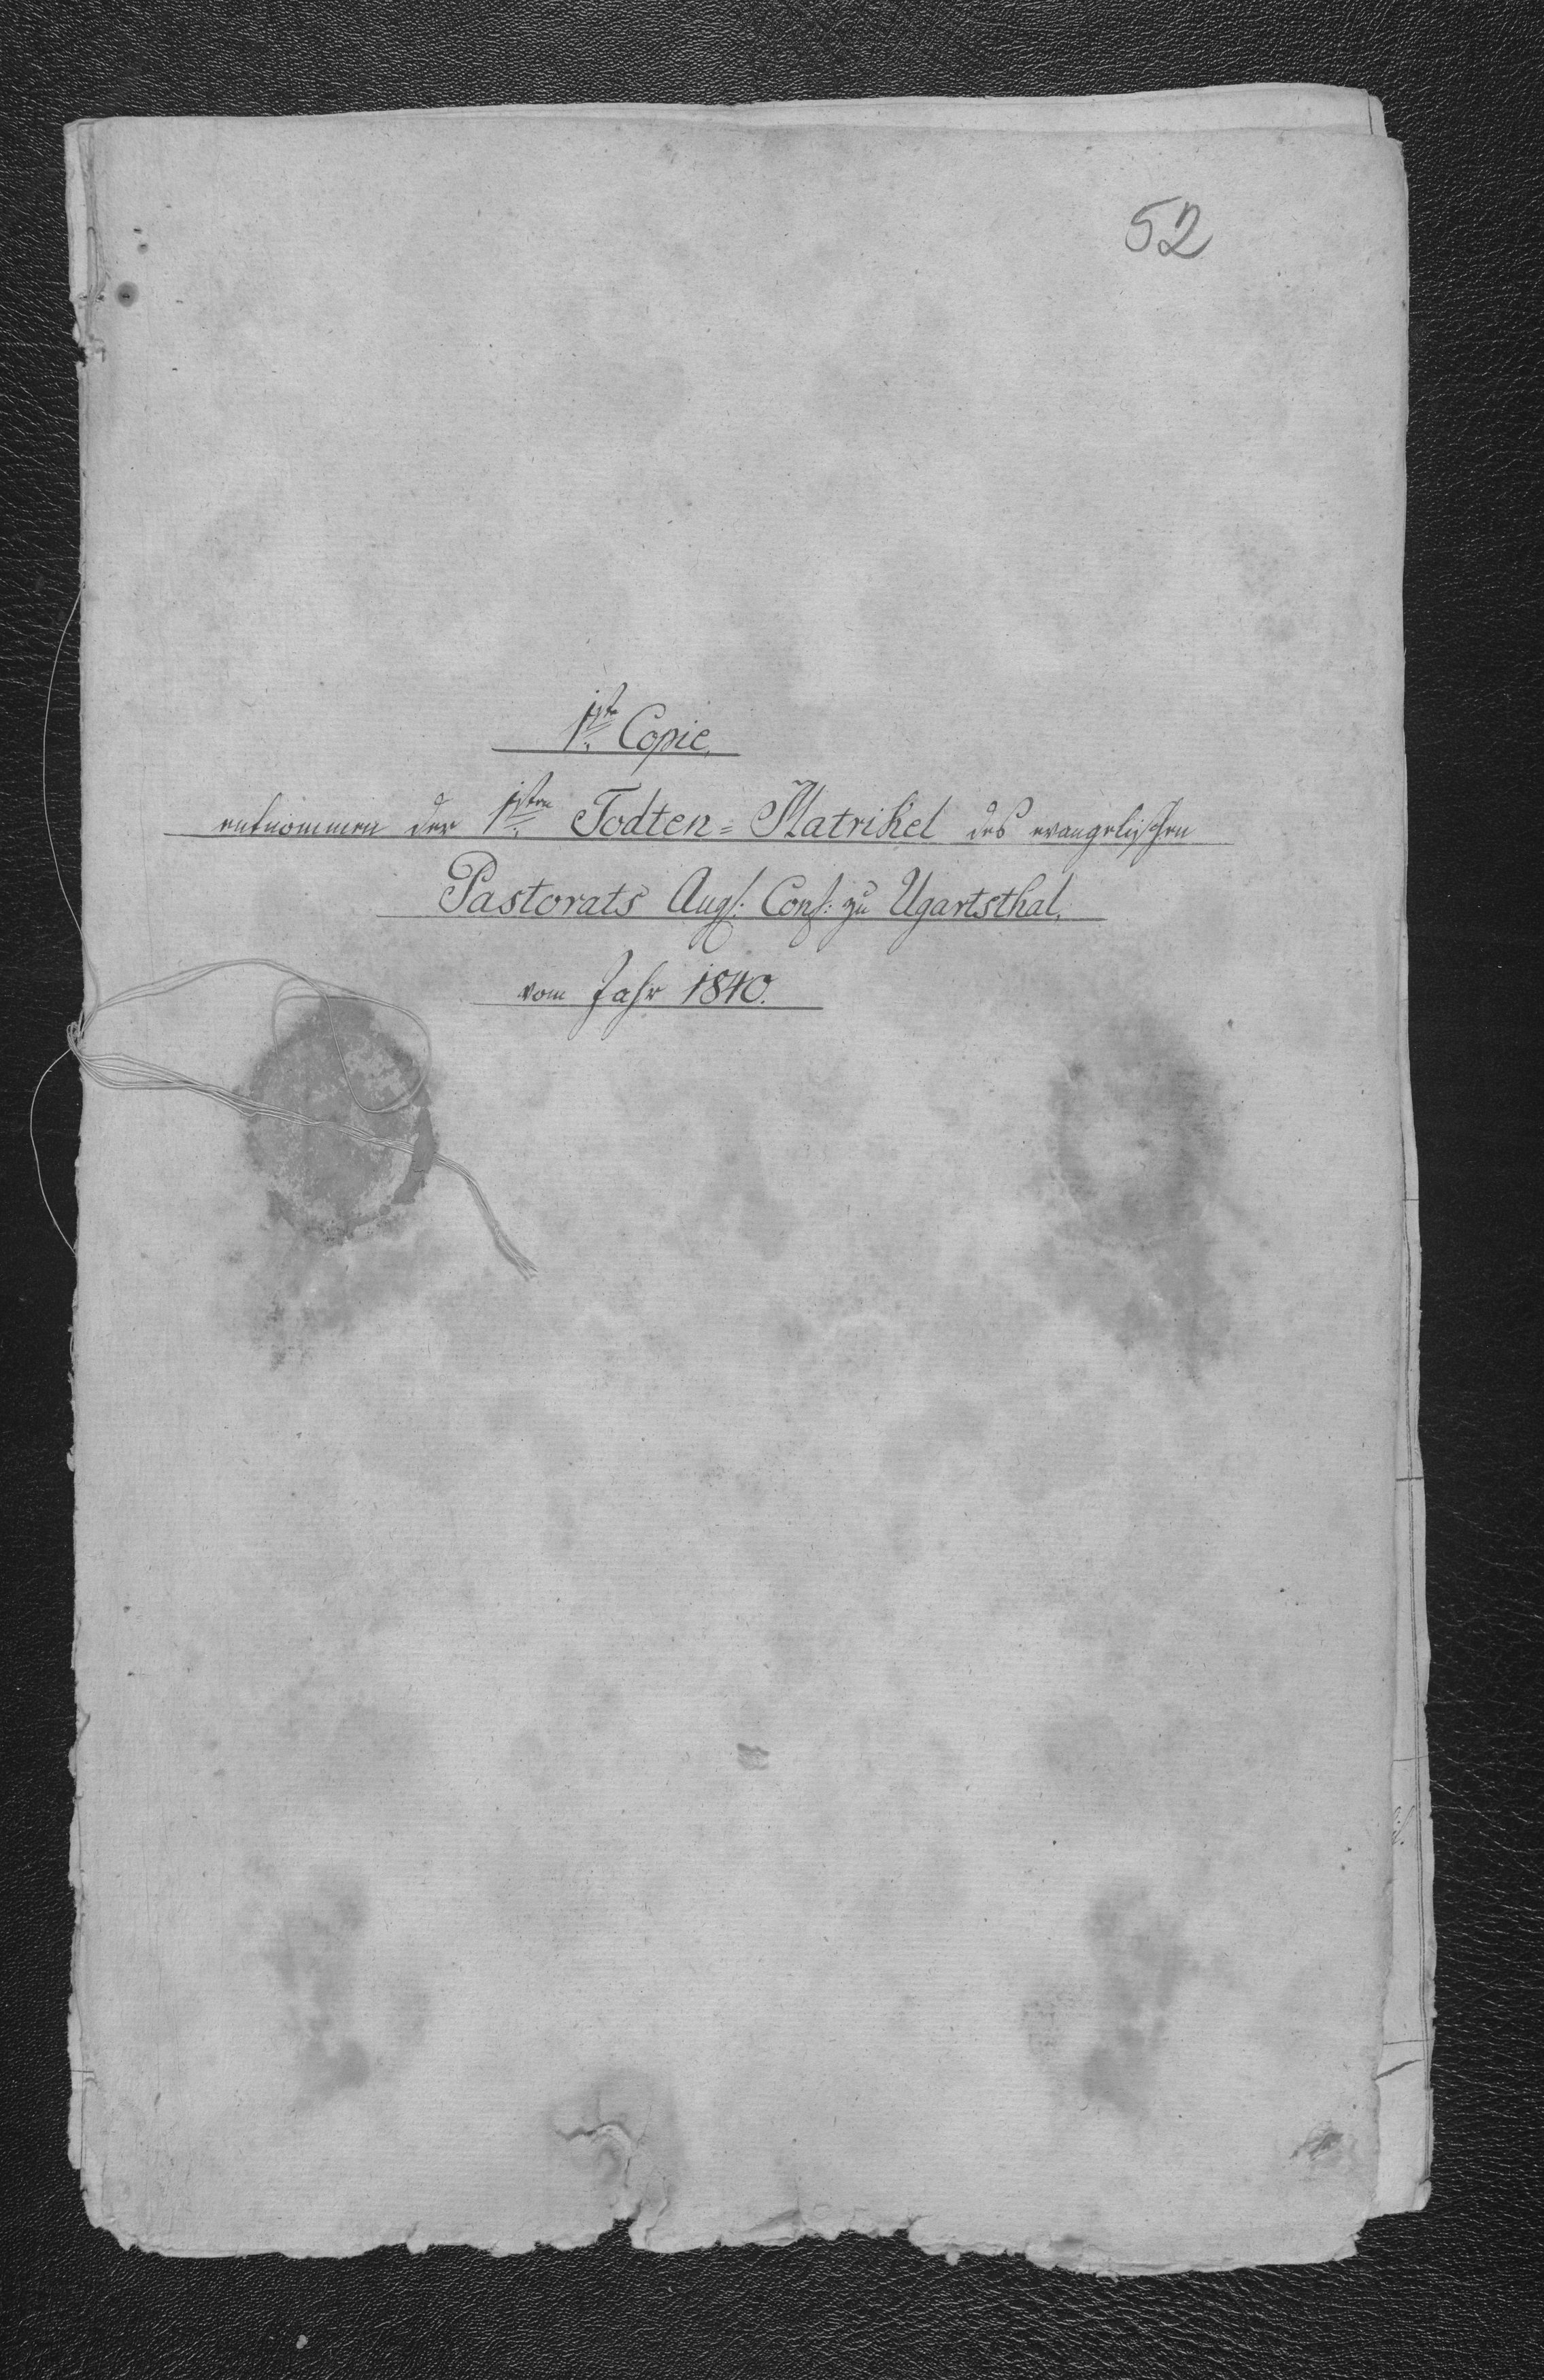 52
1ste Copie,
entnommen der 1sten Todten=Matrikel des evangelischen
Pastorats Augs: Conf: zu Ugartsthal,
vom Jahr 1840.